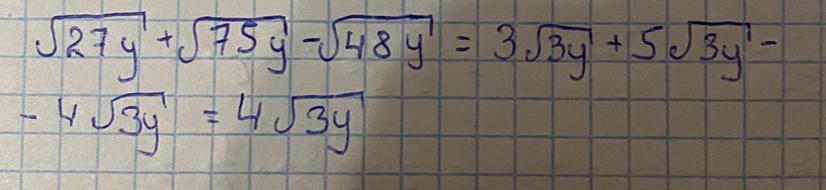 √27y + √75y - √48y = 3√3y + 5√3y -
- 4√3y = 4√3y